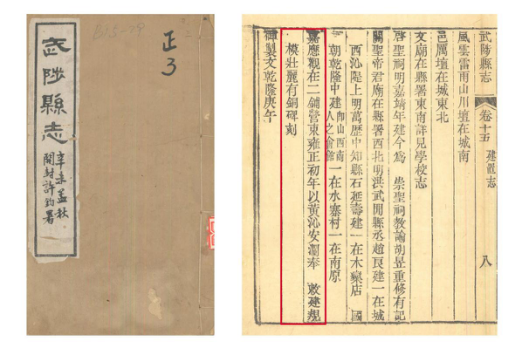 武陟縣志
辛未孟秋
開封許鈞署
正
3
武陟縣志
卷十五
建置志
八
風雲雷雨山川壇在城南
邑厲壇在城東北
文廟在縣署東南詳見學校志
啓聖祠明嘉靖年建今爲 崇聖祠教諭胡昱重修有記
關聖帝君廟在縣署西北明洪武間縣丞趙良建一在城
西沁隄上明萬歷中知縣石延壽建一在木欒店 國
朝乾隆中建山西南人之會館一在水寨村一在南原
嘉應觀在二鋪營東雍正初年以黃沁安瀾奉 敕建規
模壯麗有銅碑刻
御製文乾隆庚午